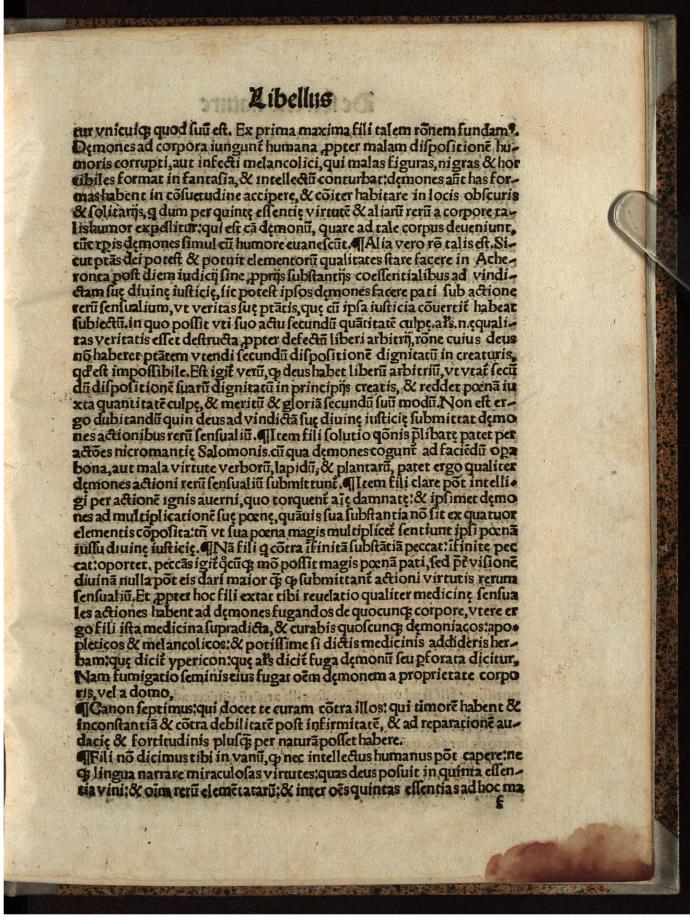 Libellus
tur vnicuiqꝫ quod suũ est. Ex prima maxima fili talem rõnem fundamꝰ.
Dęmones ad corpora iungunt̃ humana ꝓpter malam dispositionẽ hu-
moris corrupti, aut infecti melancolici, qui malas figuras, nigras & hor
ribiles format in fantasia, & intellectũ conturbat: dęmones aũt has for-
mas habent in cõsuetudine accipere, & cõiter habitare in locis obscuris
& solitarijs, q dum per quintę essentię virtutẽ & aliarũ rerũ a corpore ta-
lis humor expellitur: qui est cã dęmonũ, quare ad tale corpus deueniunt,
tũc ip̃is dęmones simul cũ humore euanescũt. ¶Alia vero rõ talis est. Si-
cut ptãs dei potest & potuit elementorũ qualitates stare facere in Ache-
ronta post diem iudicij sine ꝓprijs substantijs coessentialibus ad vindi-
ctam suę diuinę iusticię, sic potest ipsos dęmones facere pati sub actione
rerũ sensualium, vt veritas suę ptãtis, quę cũ ipsa iusticia cõuertit̃ habeat
subiectũ. in quo possit vti suo actu secundũ quãtitatẽ culpę. als̃. n. ęquali-
tas veritatis esset destructa ꝓpter defectũ liberi arbitrij, rõne cuius deus
nõ haberet ptãtem vtendi secundũ dispositionẽ dignitatũ in creaturis,
qd̃ est impossibile. Est igit̃ verũ, ꝙ deus habet liberũ arbitriũ, vt vtat̃ secũ
dũ dispositionẽ suarũ dignitatũ in principijs creatis, & reddet pœnã iu
xta quantitatẽ culpę, & meritũ & gloriã secundũ suũ modũ. Non est er-
go dubitandũ quin deus ad vindictã suę diuinę iusticię submittat dęmo
nes actionibus rerũ sensualiũ. ¶Item fili solutio qõnis p̃libatę patet per
actões nicromantię Salomonis. cũ qua dęmones cogunt̃ ad faciẽdũ opa
bona, aut mala virtute verborũ, lapidũ, & plantarũ, patet ergo qualiter
dęmones actioni rerũ sensualiũ submittunt̃. ¶Item fili clare põt intelli-
gi per actionẽ ignis auerni, quo torquent̃ aię damnatę: & ipsimet dęmo
nes ad multiplicationẽ suę pœnę, quãuis sua substantia nõ sit ex quatuor
elementis cõposita: tñ vt sua pœna magis multiplicet̃ sentiunt ipsi pœnã
iussu diuinę iusticię. ¶Nã fili q cõtra ĩfinitã substãtiã peccat: ĩfinite pec
cat: oportet. peccãs igit̃ q̃cũqꝫ mõ possit magis pœnã pati, sed p̃t visionẽ
diuinã nulla põt eis dari maior q̃ ꝙ submittant̃ actioni virtutis rerum
sensualiũ. Et ꝓpter hoc fili extat tibi reuelatio qualiter medicinę sensua
les actiones habent ad dęmones fugandos de quocunqꝫ corpore, vtere er
go fili ista medicina supradicta, & curabis quoscunqꝫ dęmoniacos: apo-
pleticos & melancolicos: & potissime si dictis medicinis addideris her-
bam: quę dicit̃ ypericon: quę als̃ dicit̃ fuga dęmonũ seu ꝑforata dicitur.
Nam fumigatio seminis eius fugat oẽm dęmonem a proprietate corpo
ris, vel a domo.
¶Canon septimus: qui docet te curam cõtra illos: qui timorẽ habent &
inconstantiã & cõtra debilitatẽ post infirmitatẽ, & ad reparationẽ au-
dacię & fortitudinis plusqꝫ per naturã posset habere.
¶Fili nõ dicimus tibi in vanũ, ꝙ nec intellectus humanus põt capere: ne
qꝫ lingua narrare miraculosas virtutes: quas deus posuit in quinta essen-
tia vini: & oĩm rerũ elemẽtatarũ: & inter oẽs quintas essentias ad hoc ma
f